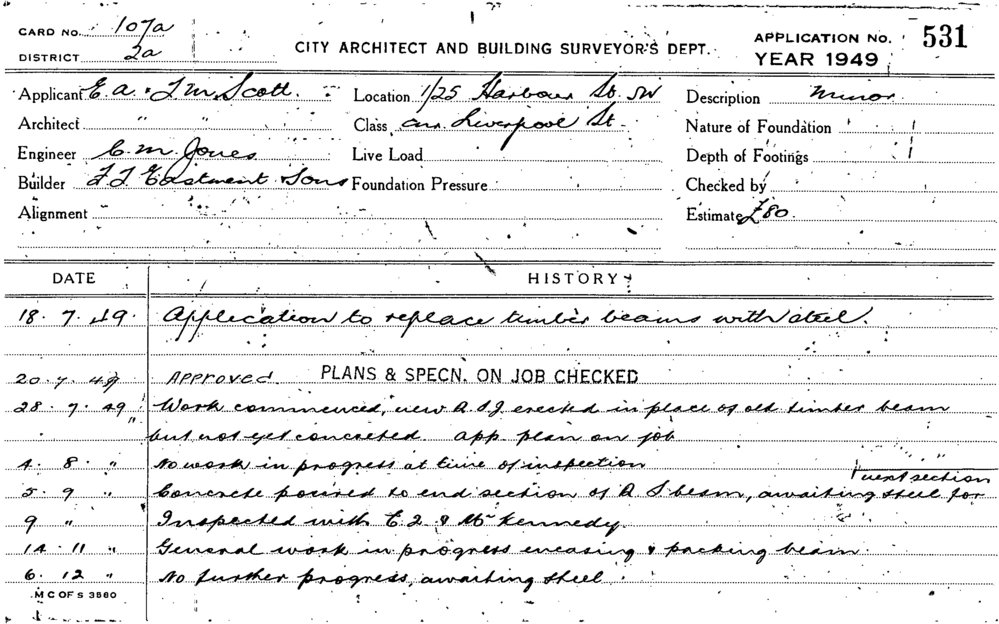 CARD NO. 107a
DISTRICT 2a
CITY ARCHITECT AND BUILDING SURVEYOR'S DEPT.
APPLICATION NO. 531
YEAR 1949
Applicant E.A. & J.M. Scott.
Architect " "
Engineer C.M. Jones
Builder F J Eastment & Sons
Alignment
Location 1/25 Harbour St. SW
Class cnr. Liverpool St.
Live Load
Foundation Pressure
Description Minor.
Nature of Foundation
Depth of Footings
Checked by
Estimate £80.
DATE HISTORY
18. 7. 49. Application to replace timber beams with steel.
20. 7. 49 Approved. PLANS & SPECN. ON JOB CHECKED
28. 7. 49 Work commenced, new R.S.J. erected in place of old timber beam
" but not yet concreted. App. plan on job
4. 8. " No work in progress at time of inspection
next section
5. 9 " Concrete poured to end section of R.S. beam, awaiting steel for
9 " Inspected with & Mr Kennedy.
14. 11 " General work in progress encasing & packing beam.
6. 12 " No further progress, awaiting steel.
M C OF S 3880